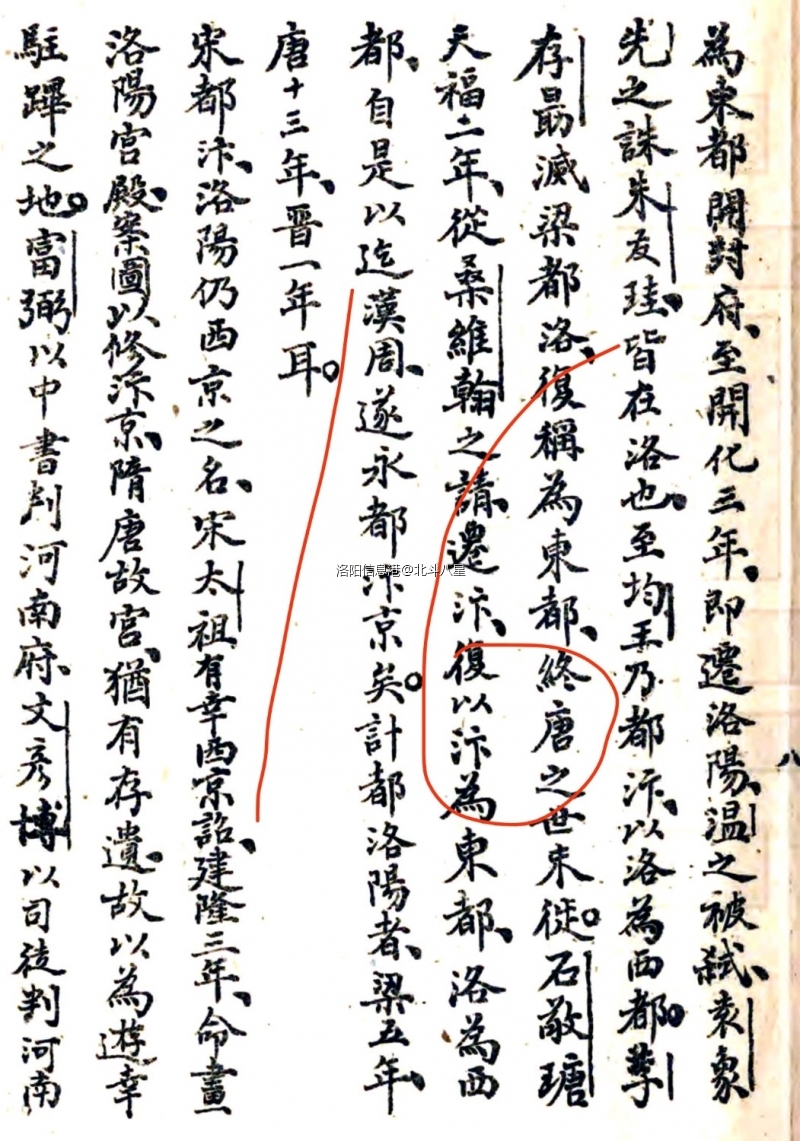 為東都開封府、至開化三年、即遷洛陽、溫之被弑、袁象
先之誅朱友珪、皆在洛也、至均王乃都汴、以洛為西都。李
存勗滅梁都洛、復稱為東都、終唐之世未徙。石敬瑭
天福二年、從桑維翰之請、遷汴、復以汴為東都、洛為西
都、自是以迄漢周、遂永都汴京矣。計都洛陽者、梁五年、
唐十三年、晋一年耳。
宋都汴、洛陽仍西京之名、宋太祖有幸西京詔、建隆三年、命畫
洛陽宫殿、案圖以修汴京、隋唐故宫、猶有存遺。故以為遊幸
駐蹕之地。富弼以中書判河南府、文彦博以司徒判河南
八
洛阳信息港@北斗八星